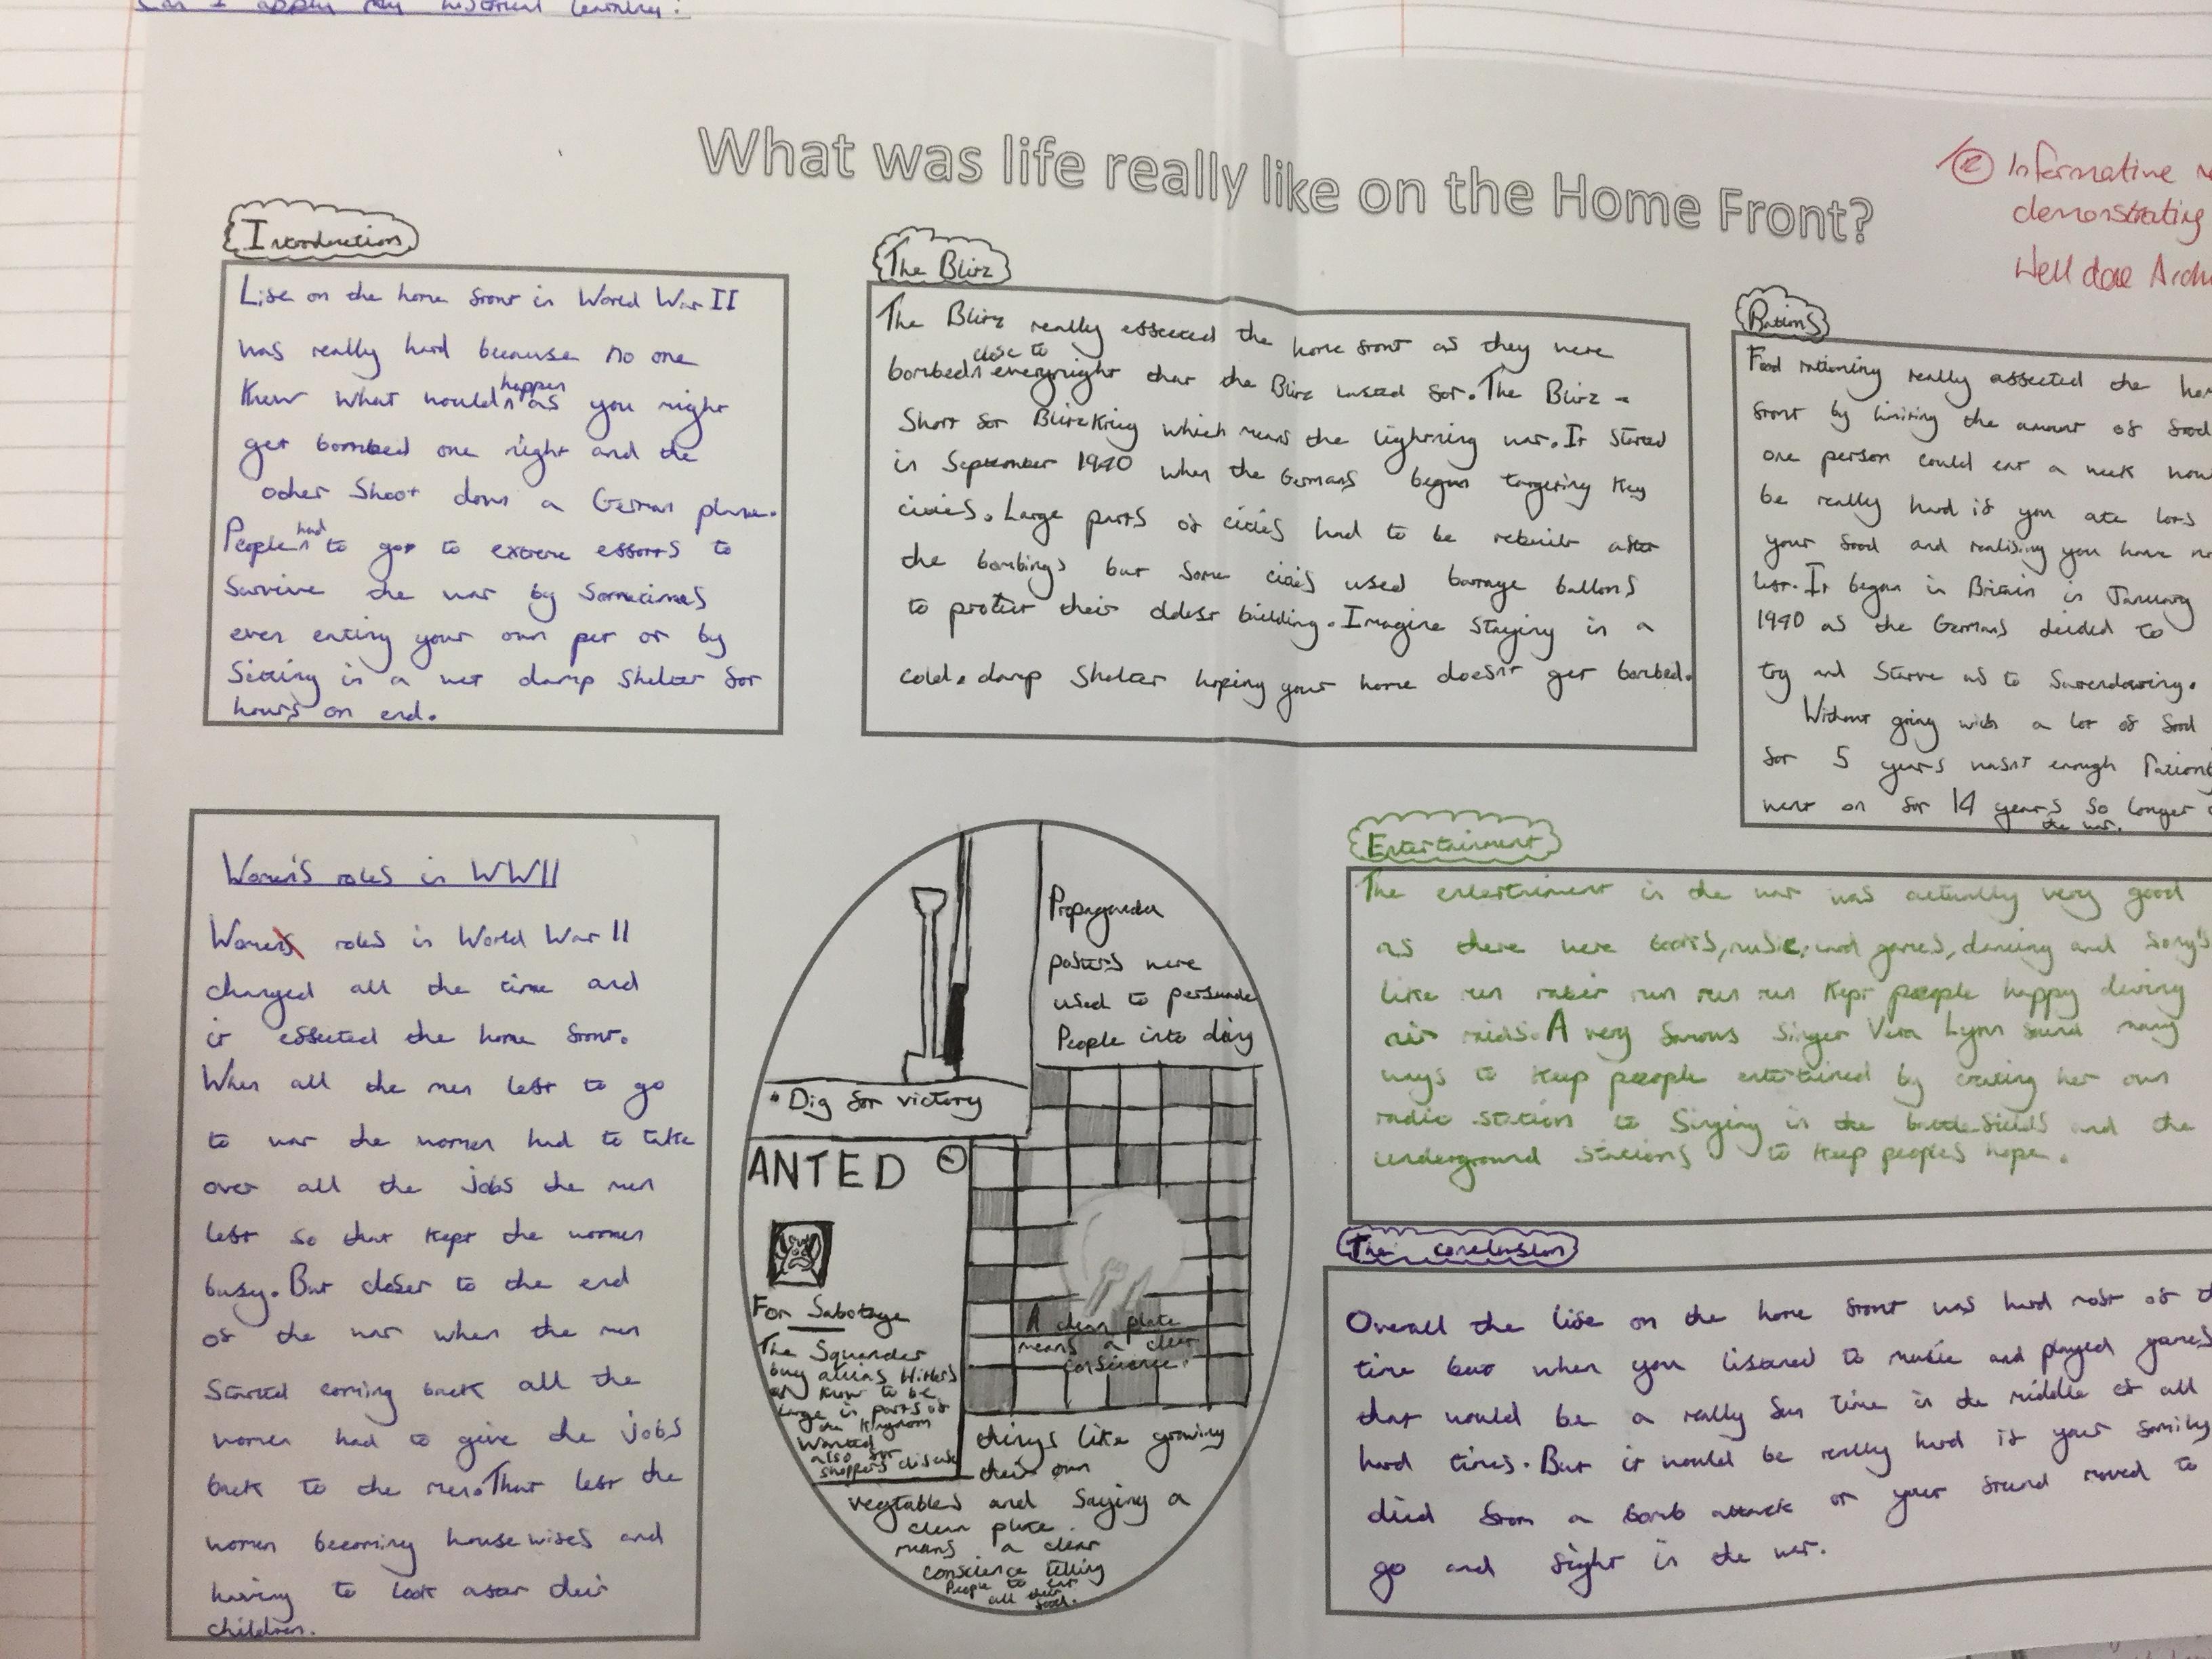 Can I apply my historical learning?
What was life really like on the Home Front?
Informative
demonstrating
Well done
Introduction
Life on the home front in World War II
was really hard because no one
knew what would happen as you might
get bombed one night and the
other shoot down a German plane.
People had to go to extreme efforts to
survive the war by sometimes
even eating your own pet or by
sitting in a wet damp shelter for
hours on end.
The Blitz
The Blitz really effected the home front as they were
bombed close to everynight that the Blitz lasted for. The Blitz -
short for BlitzKrieg which means the lightning war. It started
in September 1940 when the Germans began targeting key
cities. Large parts of cities had to be rebuilt after
the bombings but some cities used barrage ballons
to protect their oldest building. Imagine staying in a
cold, damp shelter hoping your home doesn't get bombed.
Rations
Food rationing really affected the
front by limiting the amount of food
one person could eat a week
be really hard if you ate lots
your food and realising you have
left. It began in Britain in January
1940 as the Germans decided to
try and starve us to surrendering.
Without going with a lot of food
for 5 years wasn't enough
went on for 14 years so longer
the war.
Women's roles in WWII
Women roles in World War II
changed all the time and
it effected the home front.
When all the men left to go
to war the women had to take
over all the jobs the men
left so that kept the women
busy. But closer to the end
of the war when the men
started coming back all the
women had to give the jobs
back to the men. That left the
women becoming housewifes and
having to look after their
children.
Propaganda
posters were
used to persuade
People into doing
• Dig for victory
ANTED
For Sabotage
The Squander
bug alias Hitler's
know to be
large in parts of
the Kingdom
Wanted
also for
shoppers disease
A clean plate
means a clear
conscience.
things like growing
their own
vegtables and saying a
clean plate
means a clear
conscience telling
People to eat
all their
food.
Entertainment
The entertaiment in the war was actually very good
as there were books, music, card games, dancing and song's
like run rabbit run run run kept people happy during
air raids. A very famous singer Vera Lynn found many
ways to keep people entertained by creating her own
radio station to singing in the battlefields and the
underground stations to keep peoples hope.
The conclusion
Overall the life on the home front was hard most of
time but when you listened to music and played games
that would be a really fun time in the middle of all
hard times. But it would be really hard if your family
died from a bomb attack or your friend moved to
go and fight in the war.